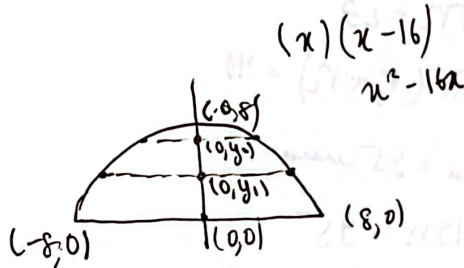 (x) (x - 16)
x² - 16x
(-0,8)
(0,y₂)
(0,y₁)
(-8,0)
(0,0)
(8,0)